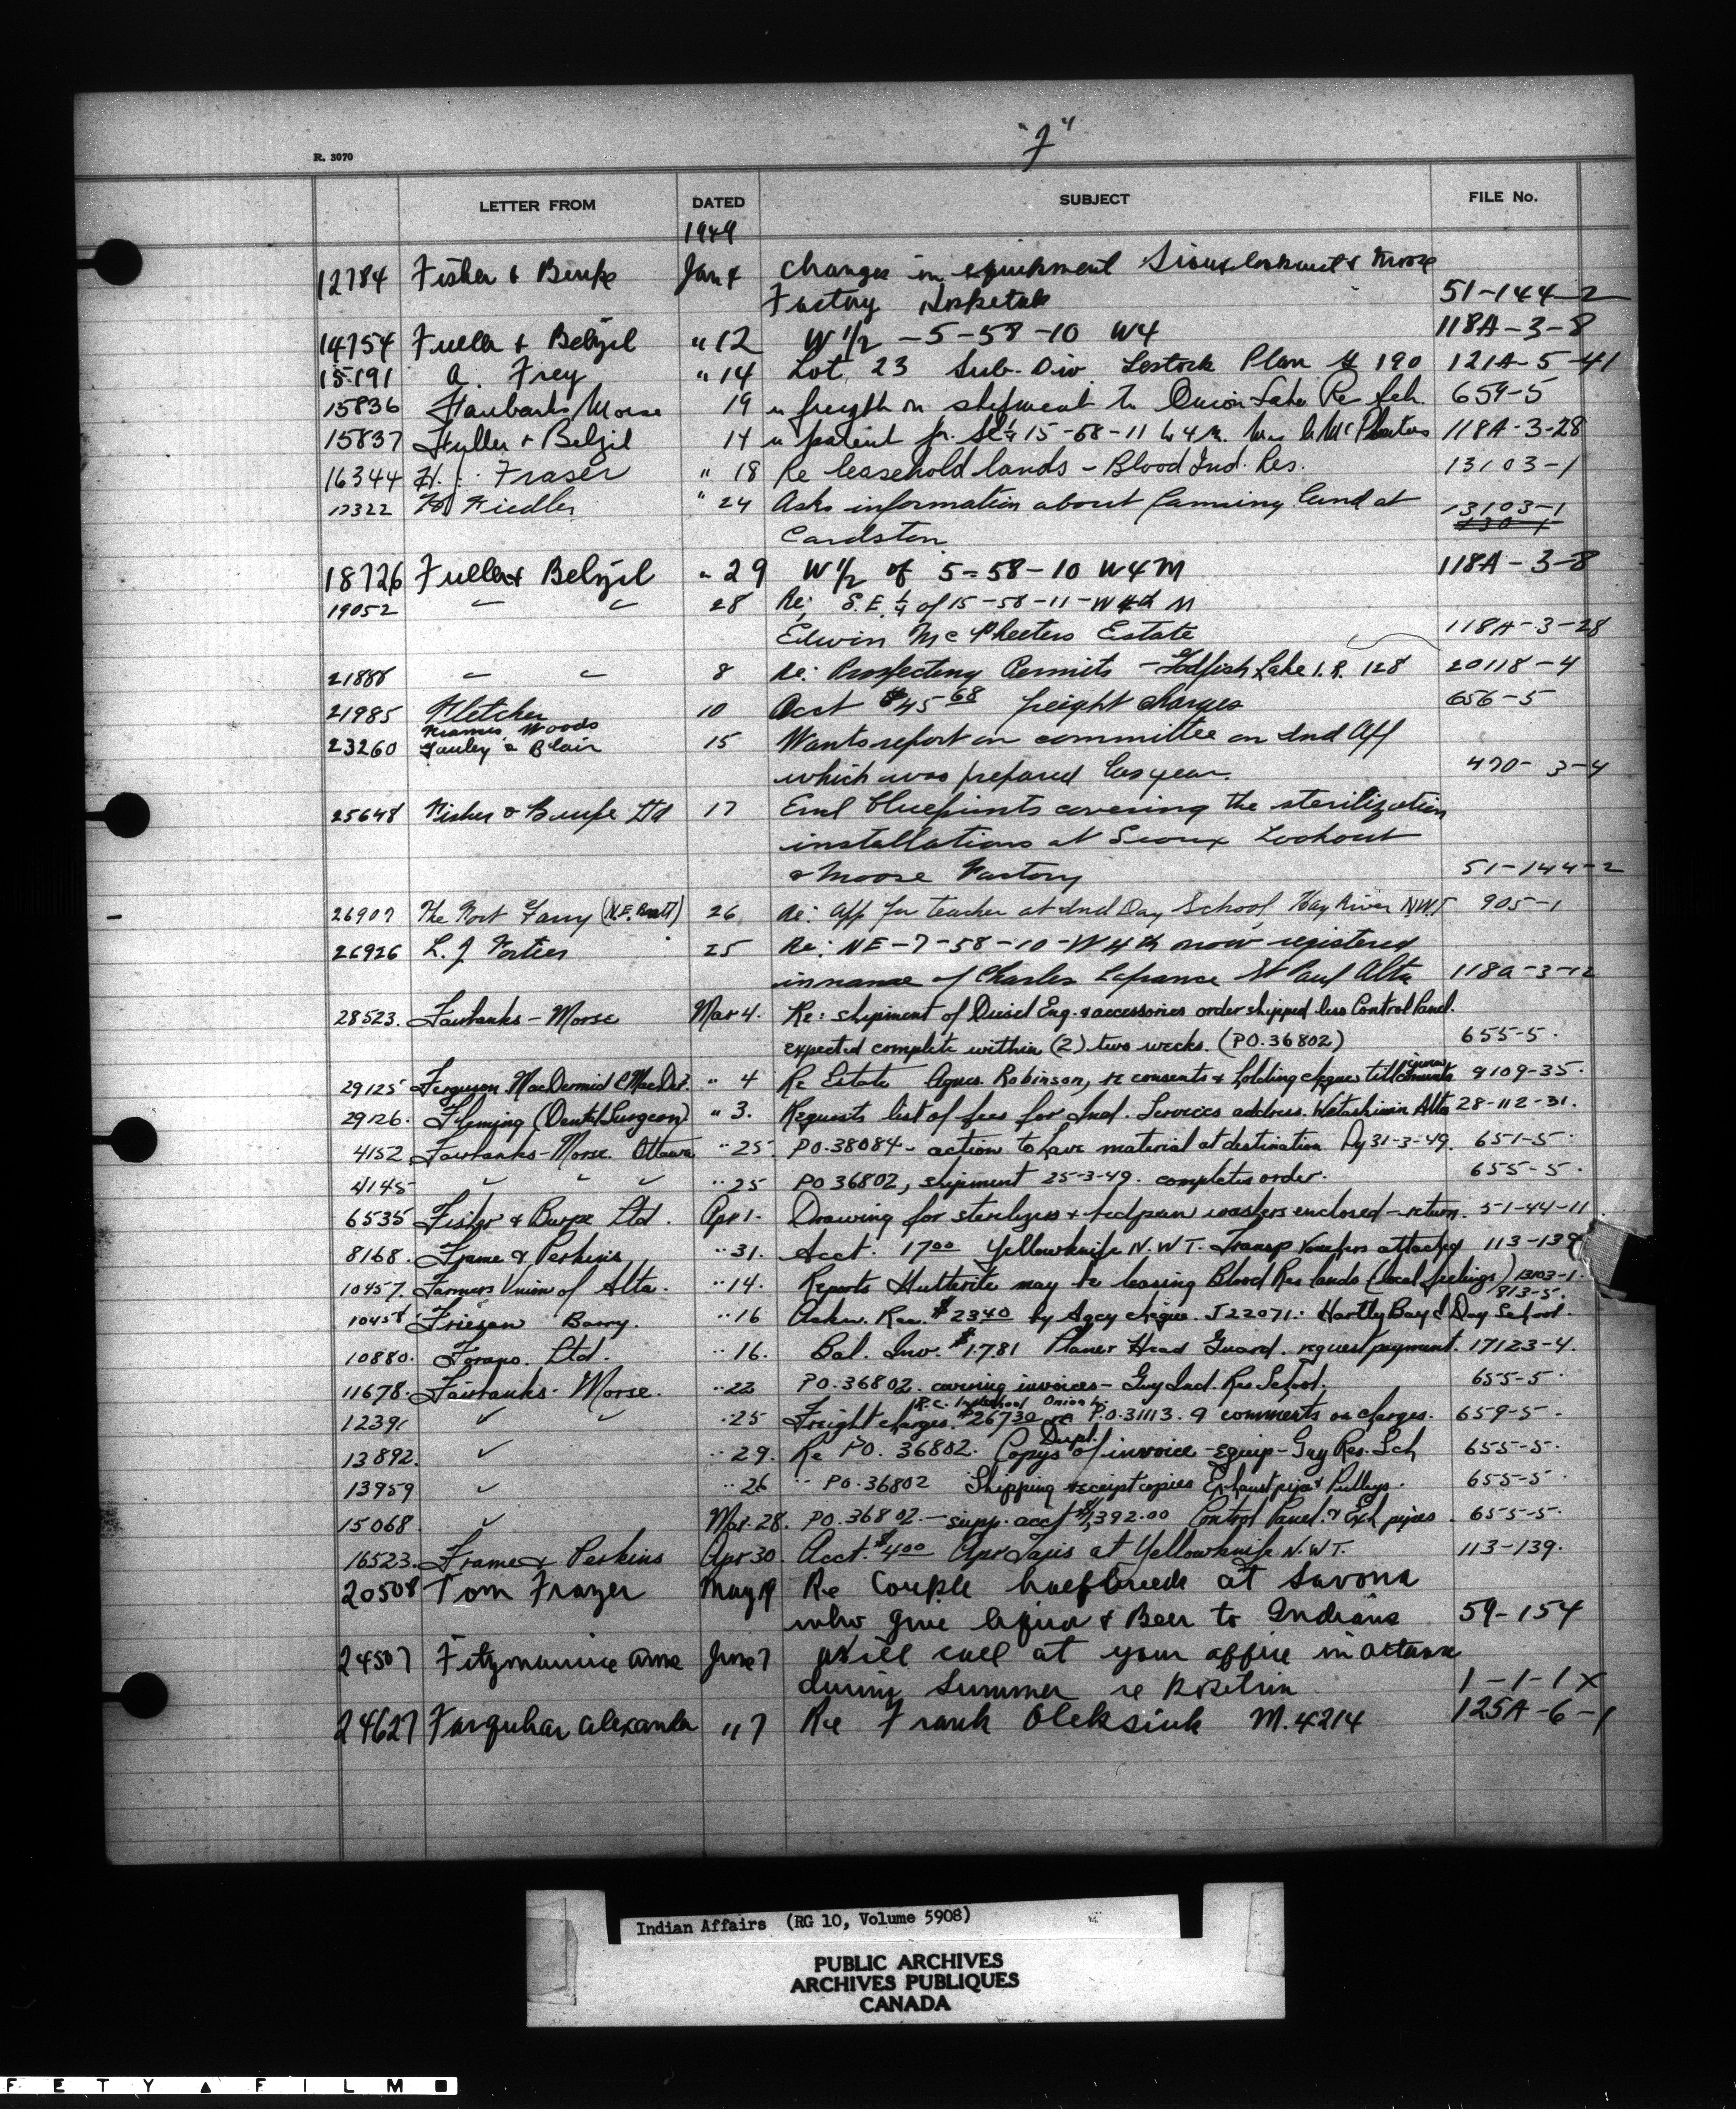 "F"
R. 3070
LETTER FROM DATED SUBJECT FILE No.
1949
12784 Fisher & Burpe Jan 4 Changes in equipment Siouxlookout & Moose
Factory Hospitals 51-144-2
14754 Fuller & Belzil " 12 W 1/2 - 5-58-10 W4 118A-3-8
15191 A. Frey " 14 Lot 23 Sub. Div Lestock Plan 190 121A-5-41
15836 Fairbanks Morse 19 freight on shipment to Onion Lake Re Sch. 659-5
15837 Fuller & Belzil 14 patent for SE 1/4 15-58-11 W 4 M. McPheeters 118A-3-28
16344 H. J. Fraser " 18 Re leasehold lands - Blood Ind. Res. 13103-1
17322 Fiedler " 24 Asks information about farming land at 13103-1
Cardston
18726 Fuller & Belzil " 29 W 1/2 of 5-58-10 W4M 118A-3-8
19052 " " 28 Re: S.E. 1/4 of 15-58-11-W 4th M
Edwin McPheeters Estate 118A-3-28
21888 " " 8 Re: Prospecting Permits - Goodfish Lake I.R. 128 20118-4
21985 Fletcher 10 Acct $45-68 freight charges 656-5
Frames Woods
23260 Gauley & Blair 15 Wants report on committee on Ind Aff
which was prepared las year. 470-3-4
25648 Fisher & Burpe Ltd 17 Encl blueprints covering the sterilization
installations at Sioux Lookout
& Moose Factory 51-144-2
26907 The Fort Garry (N.E. Bratt) 26 Re: App for teacher at Ind Day School, Hay River NWT 905-1
26926 L. J. Fortier 25 Re: NE-7-58-10-W4th now registered
in name of Charles Lafrance St Paul Alta 118A-3-12
28523. Fairbanks-Morse Mar 4. Re: shipment of Diesel Eng. & accessories order shipped less Control Panel.
expected complete within (2) two weeks. (PO. 36802) 655-5.
29125 Ferguson MacDermid & MacDer. " 4 Re Estate Agnes Robinson, re consents & holding cheque till 9109-35.
29126. Fleming (Dental Surgeon) " 3. Requests list of fees for Ind. Services address. Wetaskiwin Alta 28-112-31.
4152 Fairbanks-Morse Ottawa " 25. PO. 38084 - action to have material at destination by 31-3-49. 651-5.
4145 " " " " 25 PO 36802, shipment 25-3-49. completes order. 655-5.
6535 Fisher & Burpe Ltd. Apr 1. Drawing for sterilizers & bedpan washers enclosed - return. 51-44-11
8168. Frame & Perkins " 31. Acct. 17 00 Yellowknife N.W.T. Transp Vouchers attached 113-139
10457. Farmers Union of Alta. " 14. Reports Hutterite may be leasing Blood Res lands (local feelings) 13103-1.
813-5.
10458 Friesen Barry. " 16 Ackn. Rec. $2340 by Agcy cheque. J22071. Hartly Bay Day School.
10880. Forano Ltd. " 16. Bal. Inv. $17.81 Planer Head Guard. request payment. 17123-4.
11678. Fairbanks-Morse. " 22 PO. 36802. covering invoices - Guy Ind. Res School. 655-5.
R.C. Ind School Onion L.
12391 " " " 25 Freight charges $267 30 re P.O. 31113. 9 comments on charges. 659-5.
Dupl.
13892. " " 29. Re PO. 36802. Copys of invoice - equip - Guy Res. Sch 655-5.
13959 " " 26 " PO. 36802 Shipping receipt copies Exhaust pipe & Pulleys. 655-5.
15068. " Mar. 28. PO. 36802. - supp. acct $1,392.00 Control Panel. & Exh pipes. 655-5.
16523. Frame & Perkins Apr 30. Acct. $4 00 Apr Taxis at Yellowknife N.W.T. 113-139.
20508 Tom Frazer May 19 Re Couple halfbreeds at Savona
who give liquor & Beer to Indians 59-154
24507 Fitzmaurice Anne June 7 Will call at your office in Ottawa
during Summer re Position 1-1-1X
24627 Farquhar Alexander " 7 Re Frank Oleksiuk M. 4214 125A-6-1
Indian Affairs (RG 10, Volume 5908)
PUBLIC ARCHIVES
ARCHIVES PUBLIQUES
CANADA
FETY FILM